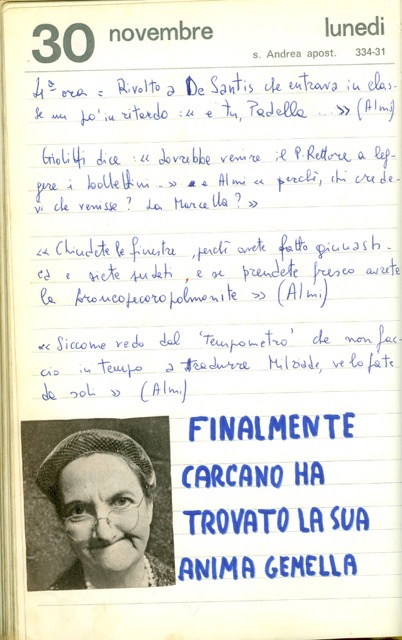 30 novembre lunedi
s. Andrea apost. 334-31
4ª ora = Rivolto a De Santis che entrava in clas-
se un po' in ritardo: « e tu, Padella ... » (Almi)
Giolitti dice: « dovrebbe venire il P. Rettore a leg-
gere i bollettini... » e Almi « perchè, chi crede-
vi che venisse? La Marcella? »
« Chiudete le finestre, perchè avete fatto ginnasti-
ca e siete sudati, e se prendete fresco avrete
la broncopecoropolmonite » (Almi)
« Siccome vedo dal 'tempometro' che non fac-
cio in tempo a tradurre Milziade, ve lo fate
da soli » (Almi)
FINALMENTE
CARCANO HA
TROVATO LA SUA
ANIMA GEMELLA